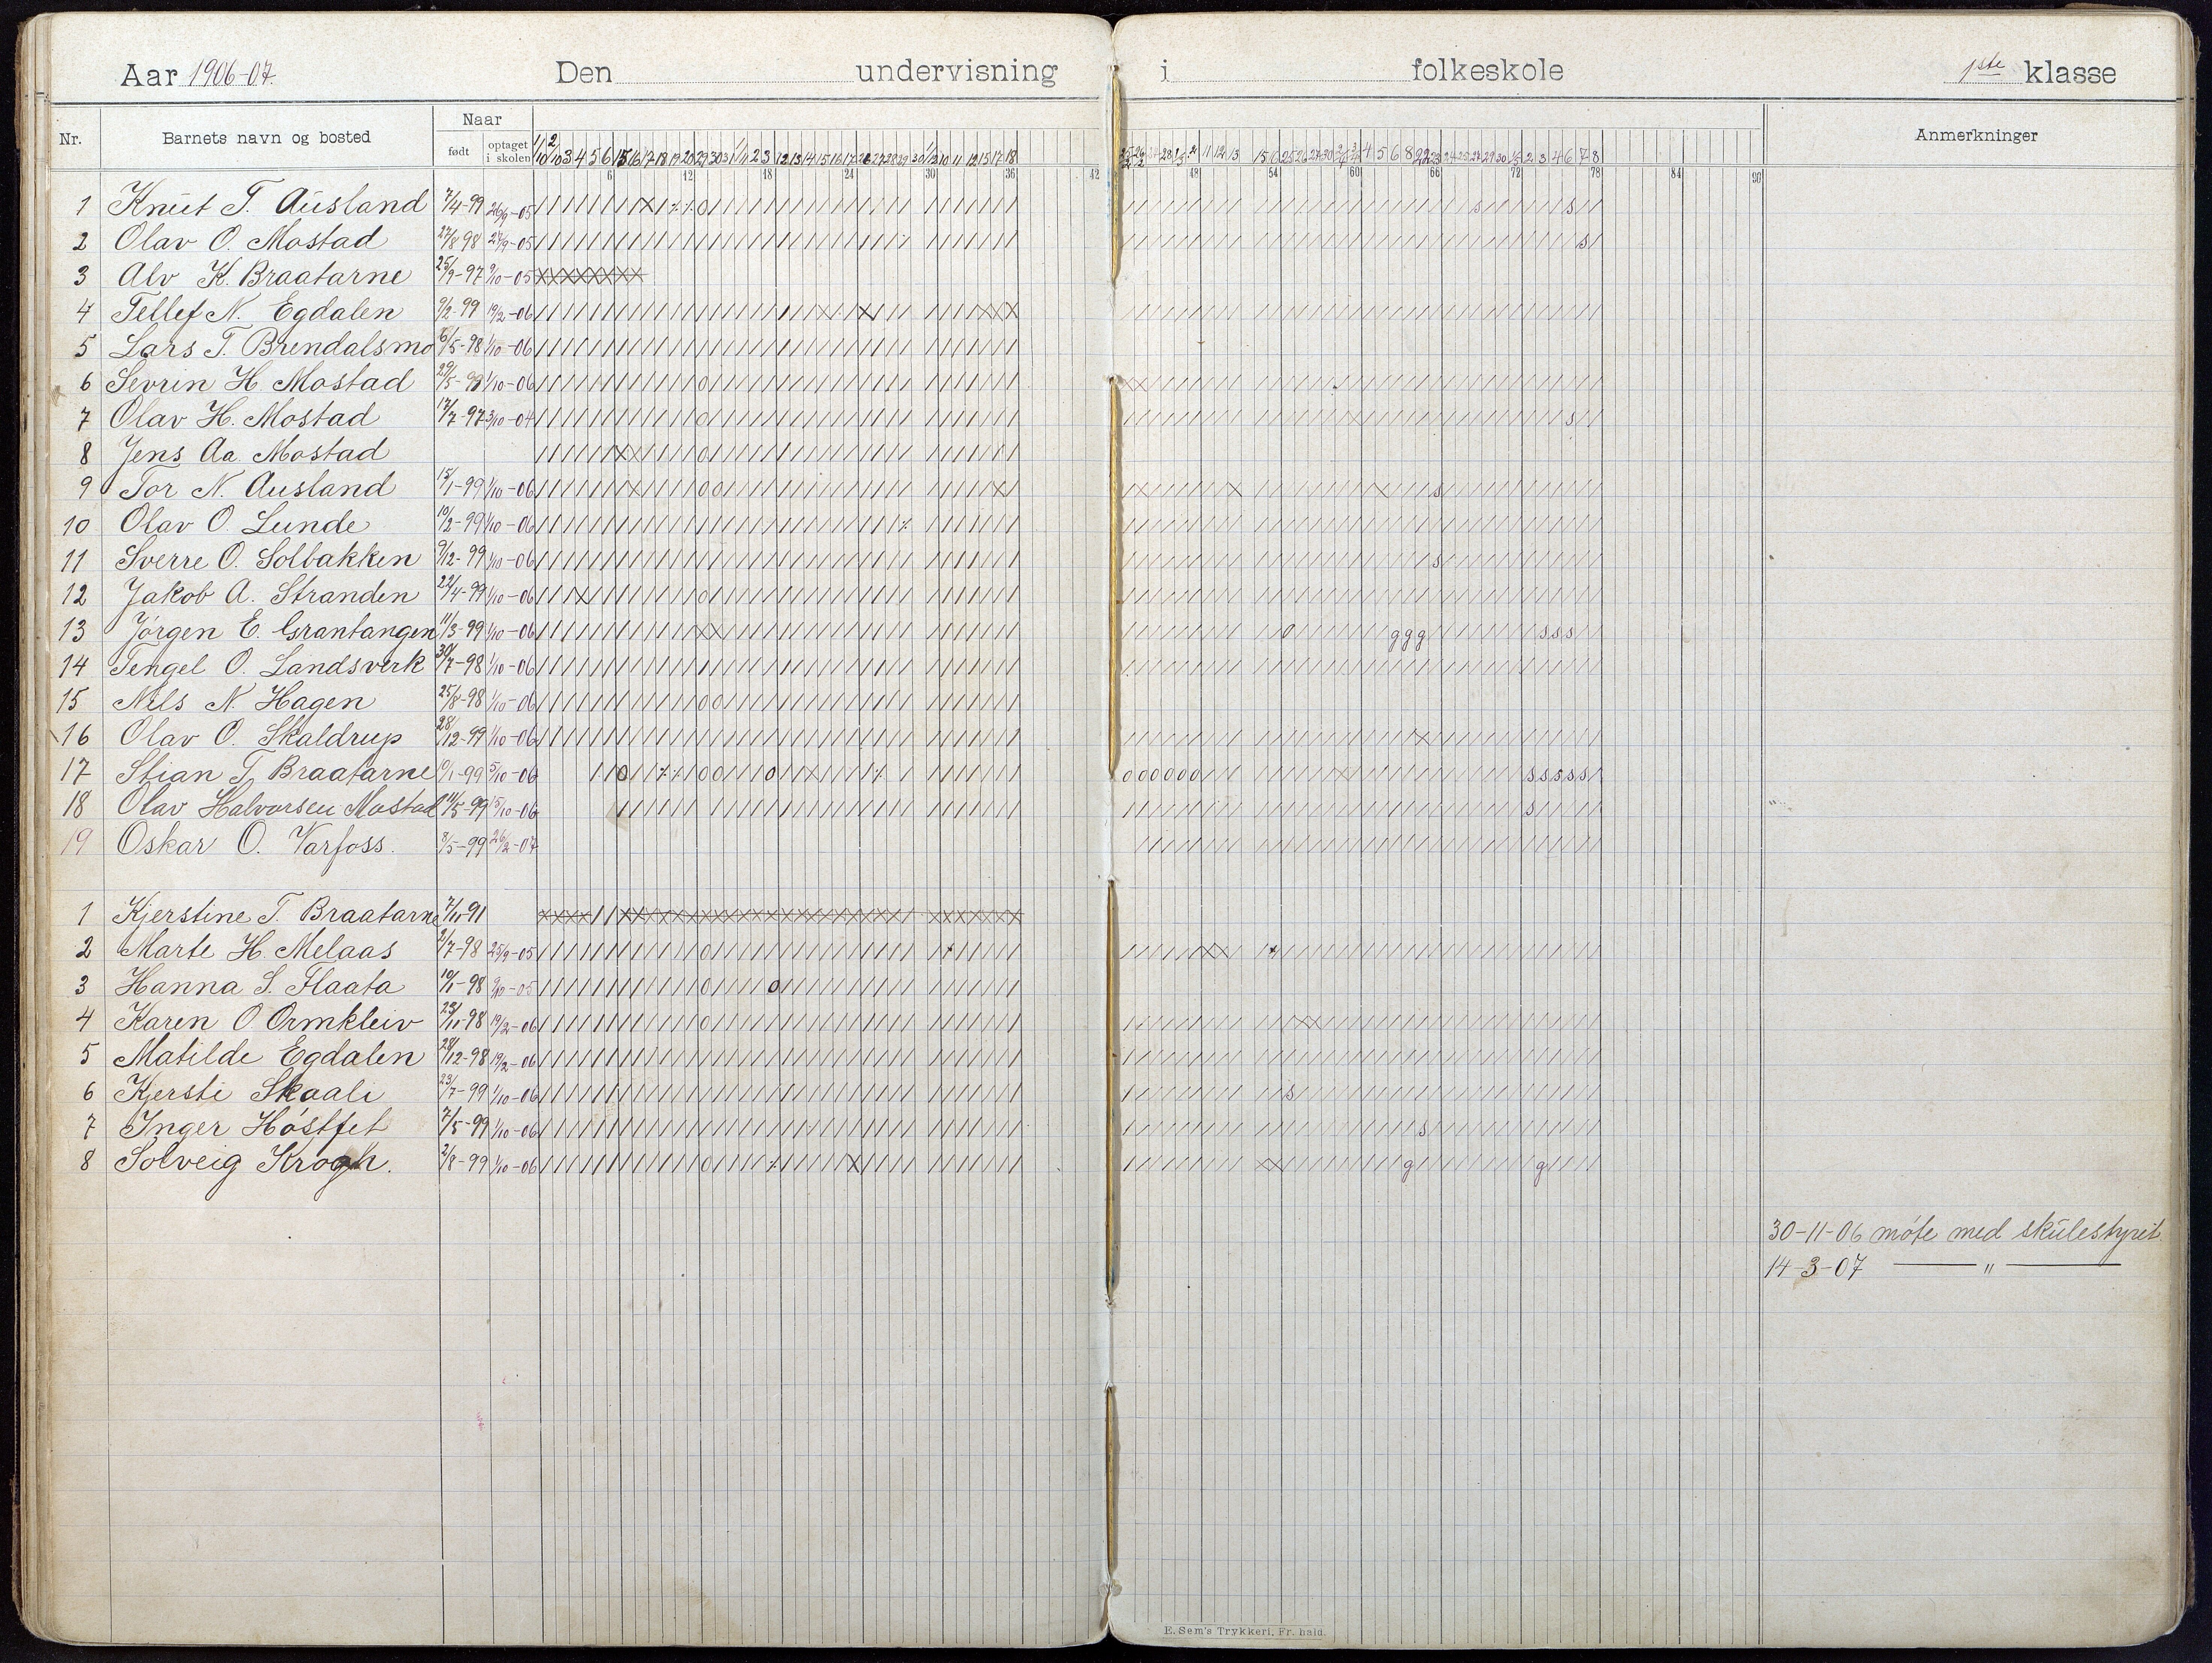 Aar 1906-07. Den undervisning i folkeskole 1ste klasse
Nr. Barnets navn og bosted Naar født optaget i skolen Anmerkninger
6 12 18 24 30 36 42 48 54 60 66 72 78 84 90
1 Knut T. Ausland 7/4-99 26/9-05
2 Olav O. Mostad 27/8 98 27/9-05
3 Alv K. Braatarne 25/9-97 9/10-05
4 Tellef N. Egdalen 9/2-99 19/2-06
5 Lars T. Brendalsmo 6/5-98 1/10-06
6 Sevrin H. Mostad 29/5- 1/10-06
7 Olav H. Mostad 17/7-97 3/10-04
8 Jens Aa. Mostad
9 Tor N. Ausland 15/1-99 1/10-06
10 Olav O. Lunde 10/2-99 1/10-06
11 Sverre O. Solbakken 9/12-99 1/10-06
12 Jakob A. Stranden 22/4-99 1/10-06
13 Jørgen E. Grantangen 11/3-99 1/10-06
14 Tengel O. Landsverk 30/7-98 1/10-06
15 Nils N. Hagen 25/8-98 1/10-06
16 Olav O. Skaldrup 28/12-99 1/10-06
17 Stian T. Braatarne 10/1-99 5/10-06
18 Olav Halvorsen Mostad 11/5-99 15/10-06
19 Oskar O. Varfoss. 8/5-99 26/2-07
1 Kjerstine T. Braatarne 7/11-91
2 Marte H. Melaas 2/7-98 25/9-05
3 Hanna S. Flaata 10/1-98 9/10-05
4 Karen O. Ormkleiv 23/11-98 19/2-06
5 Matilde Egdalen 28/12-98 19/2-06
6 Kjersti Skaali 23/7-99 1/10-06
7 Inger Høstfet 7/5-99 1/10-06
8 Solveig Krogh. 2/8-99 1/10-06
30-11-06 møte med skulestyret.
14-3-07 — " —
E. Sem's Trykkeri, Fr.hald.